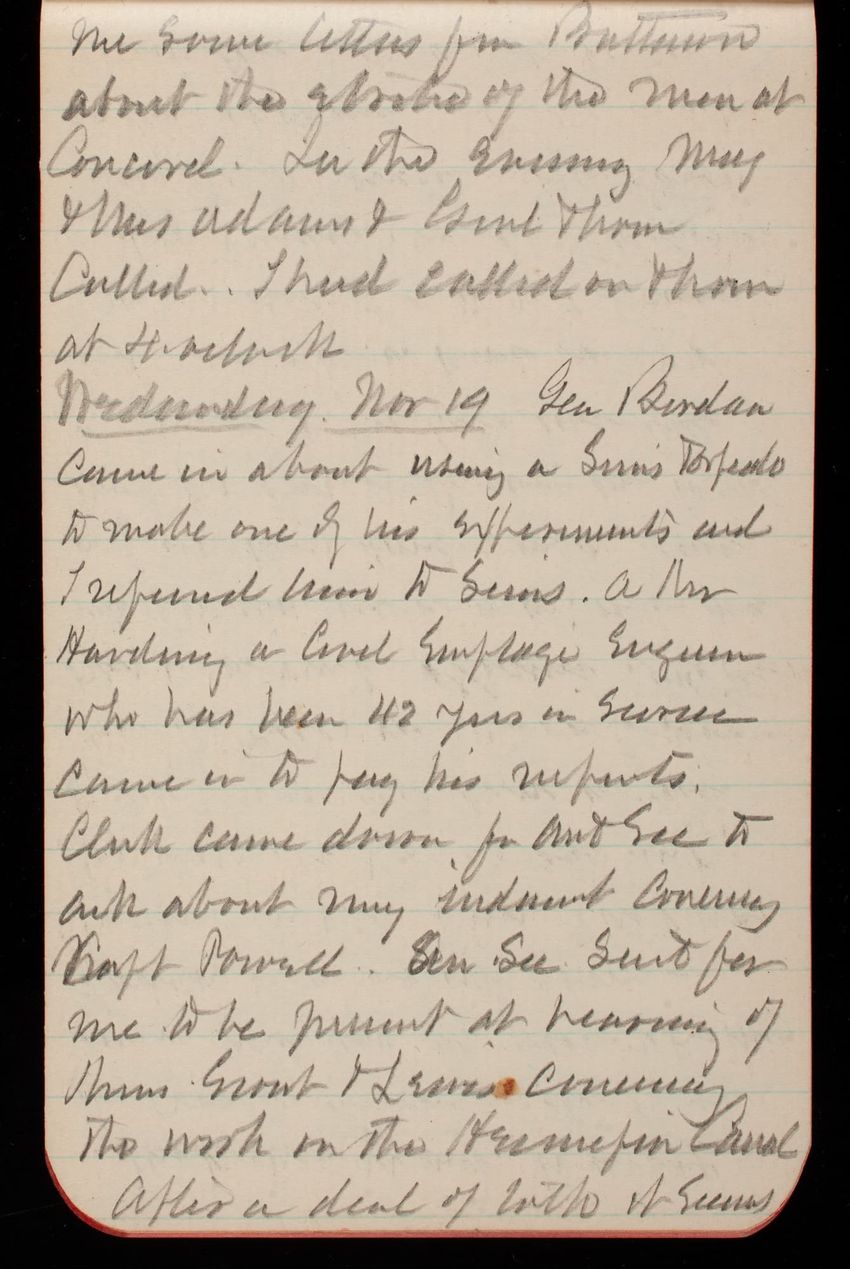 me some letters from Batterson
about the statue of the man at
Concord. In the evening Maj
& Mrs Adams & Genl Thom
Called.. I had called on Thom
at 4. oclock
Wednesday. Nov 19 Gen Berdan
came in about using a Sims Torpedo
to make one of his experiments and
I referred him to Sims. A Mr
Harding a Civil Engineer
who has been 42 yrs in Service
came in to pay his respects.
Clerk came down fr Asst Sec to
ask about my indorsmt concerning
Capt Powell. The Sec sent for
me to be present at hearing of
Grout & Lewis concerning
the work on the Hennepin Canal
After a deal of talk it seems